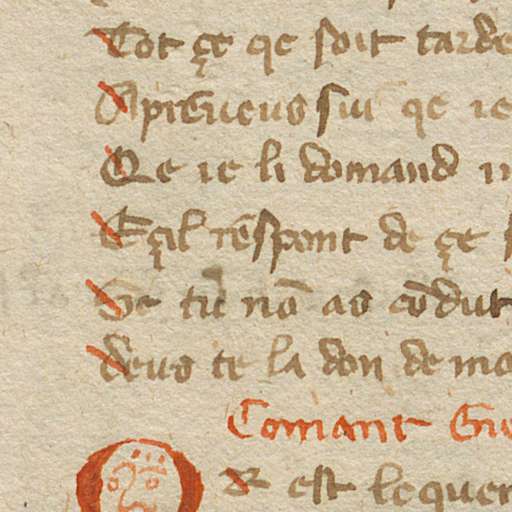 Tot çe qe soit tarde
Apreueus sui qe ie
Qe ie li domand
E çil respont de çe
Se tu nō as cōdut
deus te la don de mo
Comant Gu
OR est le quer